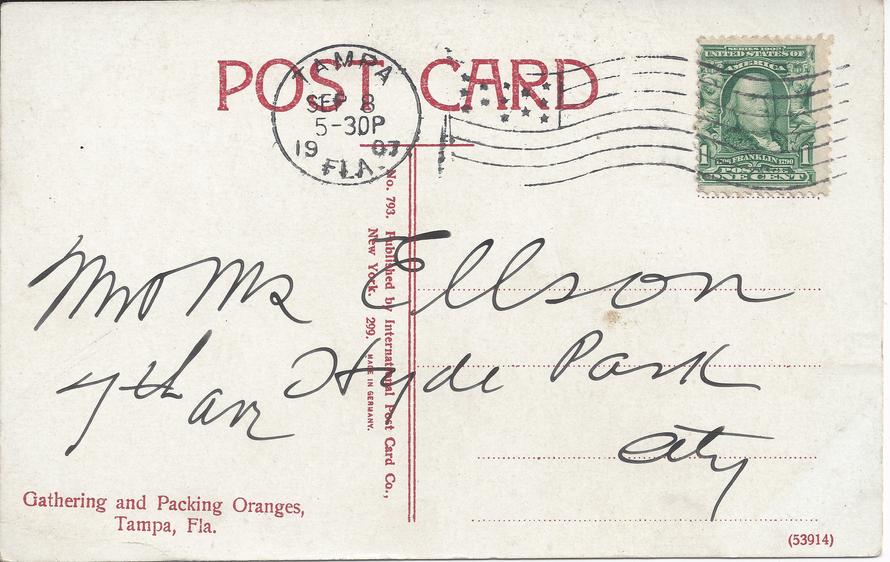 POST CARD
TAMPA
SEP 8
5-30P
1907
FLA.
SERIES 1902
UNITED STATES OF
AMERICA
1 1706 FRANKLIN 1790 1
POSTAGE
ONE CENT
No. 793. Published by International Post Card Co.,
New York. 299. MADE IN GERMANY.
Ellson
7th av Hyde Park
City
Gathering and Packing Oranges,
Tampa, Fla.
(53914)